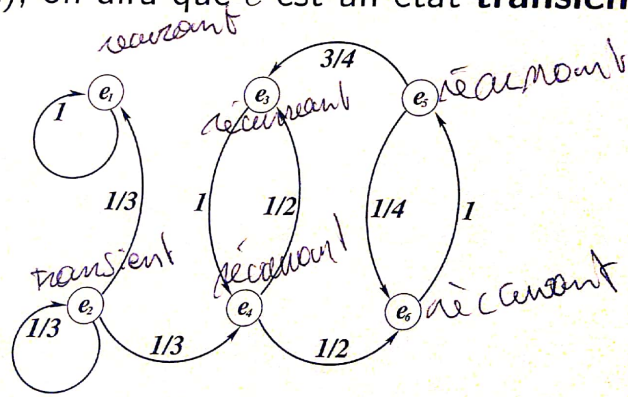 ), on dira que e est un état transien
récurrent
3/4
e₁
e₃
e₅ récurrent
récurrent
1
1/3
1
1/2
1/4
1
transient
récurrent
e₂
e₄
e₆ récurrent
1/3
1/3
1/2